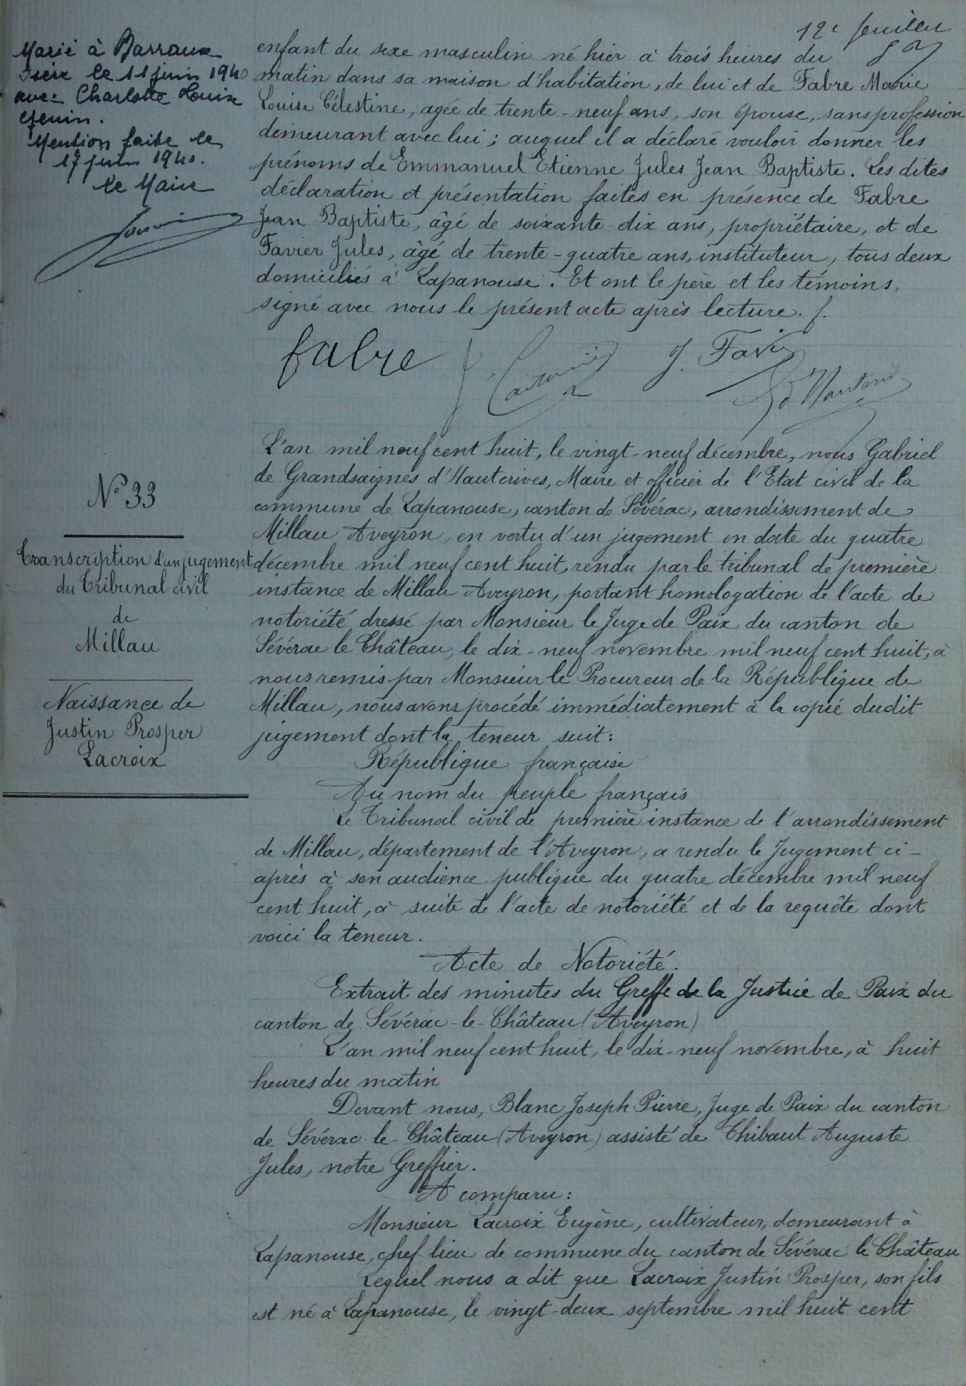 12e feuillet
Marié à Barraux
Isère le 11 juin 1940
avec Charlotte Louise
Genin.
Mention faite le
17 juin 1940.
Le Maire
enfant du sexe masculin né hier à trois heures du
matin dans sa maison d'habitation, de lui et de Fabre Marie
Louise Célestine, agée de trente-neuf ans, son épouse, sans profession
demeurant avec lui; auquel il a déclaré vouloir donner les
prénoms de Emmanuel Etienne Jules Jean Baptiste. Les dites
déclaration et présentation faites en présence de Fabre
Jean Baptiste, âgé de soixante-dix ans, propriétaire, et de
Favier Jules, âgé de trente-quatre ans, instituteur, tous deux
domiciliés à Lapanouse. Et ont le père et les témoins,
signé avec nous le présent acte après lecture. f.
fabre
J. Favier
Nº 33
Transcription d'un jugement
du Tribunal civil
de
Millau
Naissance de
Justin Prosper
Lacroix
L'an mil neuf cent huit, le vingt-neuf décembre, nous Gabriel
de Grandsaignes d'Hauterives, Maire et officier de l'Etat civil de la
commune de Lapanouse, canton de Sévérac, arrondissement de
Millau Aveyron, en vertu d'un jugement en date du quatre
décembre mil neuf cent huit, rendu par le tribunal de première
instance de Millau Aveyron, portant homologation de l'acte de
notoriété dressé par Monsieur le Juge de Paix du canton de
Sévérac le Château, le dix-neuf novembre mil neuf cent huit, à
nous remis par Monsieur le Procureur de la République de
Millau, nous avons procédé immédiatement à la copie dudit
jugement dont la teneur suit:
République française
Au nom du peuple français
Le Tribunal civil de première instance de l'arrondissement
de Millau, département de l'Aveyron, a rendu le Jugement ci-
après à son audience publique du quatre décembre mil neuf
cent huit, à suite de l'acte de notoriété et de la requête dont
voici la teneur.
Acte de Notoriété.
Extrait des minutes du Greffe de la Justice de Paix du
canton de Sévérac-le-Château (Aveyron)
L'an mil neuf cent huit, le dix-neuf novembre, à huit
heures du matin
Devant nous, Blanc Joseph Pierre, Juge de Paix du canton
de Sévérac-le-Château (Aveyron) assisté de Thibaut Auguste
Jules, notre Greffier.
A comparu:
Monsieur Lacroix Eugène, cultivateur, demeurant à
Lapanouse, chef lieu de commune du canton de Sévérac le Château
Lequel nous a dit que Lacroix Justin Prosper, son fils
est né à Lapanouse, le vingt-deux septembre mil huit cent